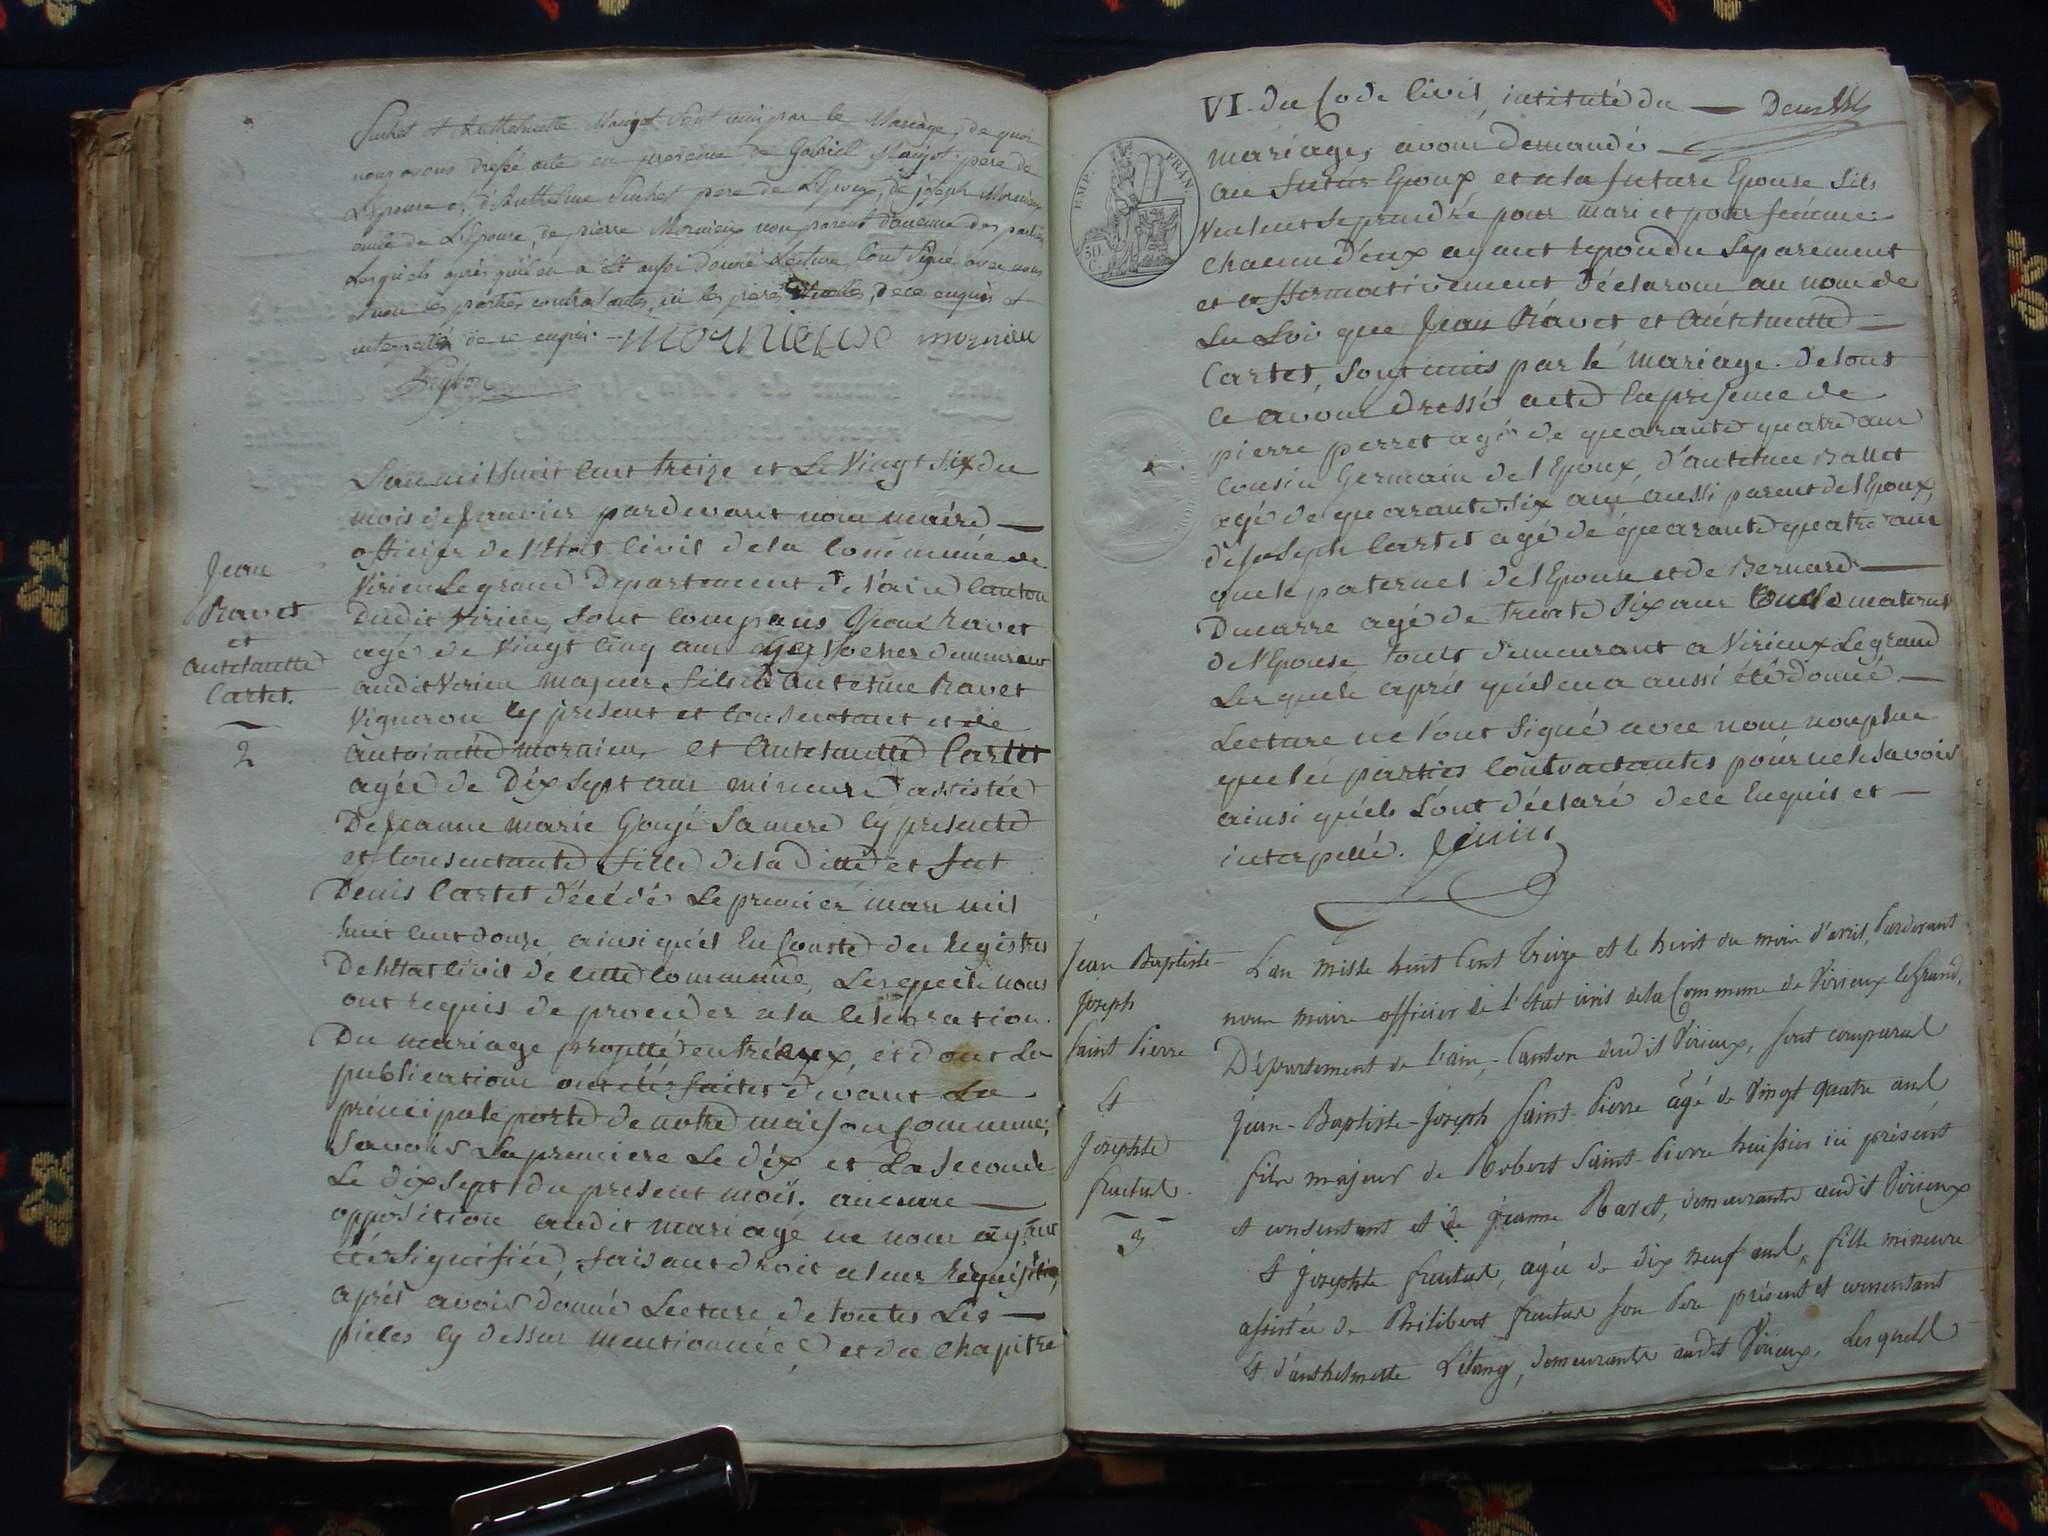 Suchet & Anthelmette Maujot sont unis par le Mariage, de quoi
nous avons dressé acte en presence de Gabriel Maujot pere de
L'Epouse, d'Anthelme Suchet pere de L'Epoux, de joseph Mornieux
oncle de L'Epouse, de pierre Mornieux non parent d'aucune des parties
Lesquels après qu'il en a été aussi donné Lecture l'ont signé avec nous
et non les parties contractantes, ni les pères, de ce enquis et
interpellés de ce enquis. Mornieux mornieu
L'an mil huit cent treize et Le Vingt six du
mois de Janvier pardevant nous maire
officier de l'Etat Civil de la Commune de
Virieu Le grand Departement de l'ain Canton
Dudit Virieu, sont Comparus Jean Ravet
agé de Vingt Cinq ans demeurant
audit Virieu majeur, fils d'Antelme Ravet
Vigneron Cy present et Consentant et de
Antoinette mornieu, et Antelmette Cartet
agée de Dix sept ans mineure assistée
De Jeanne marie Goujé Sa mere Cy presente
et Consentante fille de la ditte et fut
Denis Cartet décédé Le premier mars mil
huit cent douze, ainsi qu'il En Conste des Registres
De l'Etat Civil de cette Commune, Lesquels nous
ont requis de proceder a la Celebration
Du mariage projetté entréeux, et dont Les
publications ont été faites devant La
principale porte de notre maison Commune;
Savoir La premiere Le dix et La seconde
Le dix sept du present mois. aucune
opposition audit mariage ne nous ayant
été Signifiée, faisant droit a leur Requisition,
aprés avoir donné Lecture de toutes Les
pieces Cy dessus mentionnées, et du Chapitre
Jean
Ravet
et
Antelmette
Cartet.
2
VI. du Code Civil, intitulé du Deux
mariage, avons demandé
au futur Epoux et a la future Epouse s'ils
Veulent se prendre pour mari et pour femme:
Chacun d'eux ayant repondu Separement
et affirmativement déclarons au nom de
La Loi que Jean Ravet et Antelmette
Cartet, sont unis par le mariage. de tout
Ce avons dressé acte En presence de
pierre perret agé de quarante quatre ans
Cousin Germain de l'Epoux, d'antelme Ballet
agé de quarante six ans aussi parent de l'Epoux,
de Joseph Cartet agé de quarante quatre ans
oncle paternel de l'Epouse et de Bernard
Ducarre agé de trente six ans oncle maternel
de l'Epouse touts demeurant a Virieux Le grand
Lesquels aprés qu'il en a aussi été donné
Lecture ne l'ont signé avec nous non plus
que les parties Contractantes pour ne le savoir
ainsi qu'ils L'ont déclaré de Ce Enquis et
interpellé. Jenin
EMP. FRAN.
50 C.
Jean Baptiste
Joseph
Saint Pierre
&
Josephte
fructus.
3
L'an Mille huit Cent Treize et le huit du mois d'avril, Pardevant
nous maire officier de l'Etat civil de la Commune de Virieux le Grand,
Département de l'ain, Canton dudit Virieux, sont comparus
Jean-Baptiste-Joseph Saint-Pierre âgé de Vingt quatre ans
fils majeur de Robert Saint-Pierre huissier ici présent
et consentant et de Jeanne Ravet, demeurants audit Virieux
& Josephte fructus, agée de dix neuf ans, fille mineure
assistée de Philibert fructus son Père présent et consentant
& d'anthelmette Létang, demeurants audit Virieux, Lesquels